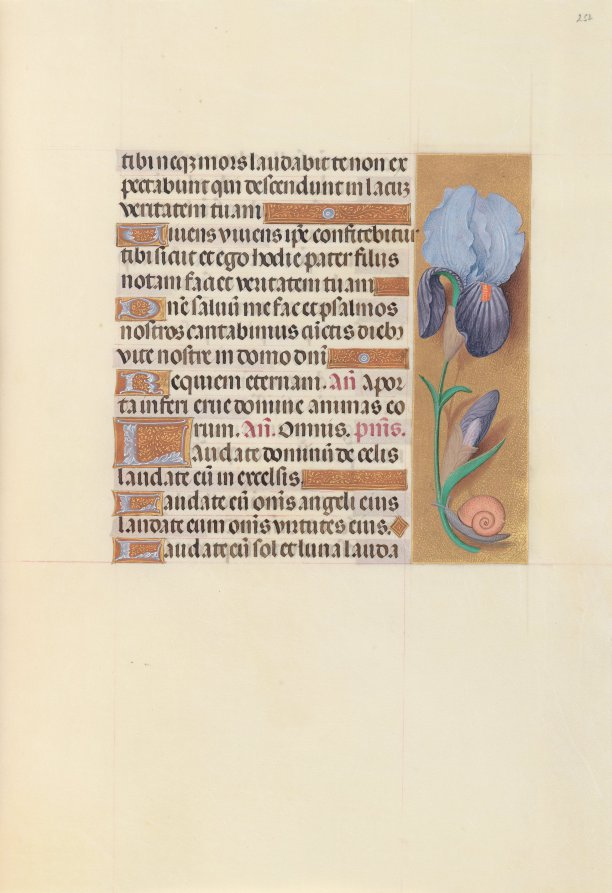 252
tibi neqȝ mors laudabit te non ex
pectabunt qui descendunt in lacuȝ
veritatem tuam
Uiuens viuens ip̄e confitebitur
tibi sicut et ego hodie pater filiis
notam faciet veritatem tuam
Dn̄e saluū me fac et psalmos
nostros cantabimus cūctis diebȝ
vite nostre in domo dn̄i
Requiem eternam. Añ Apor
ta inferi erue domine animas eo
rum. Añ. Omnis. p̄mis.
Laudate dominū de celis
laudate eū in excelsis.
Laudate eū om̄s angeli eius
laudate eum om̄s virtutes eius.
Laudate eū sol et luna lauda